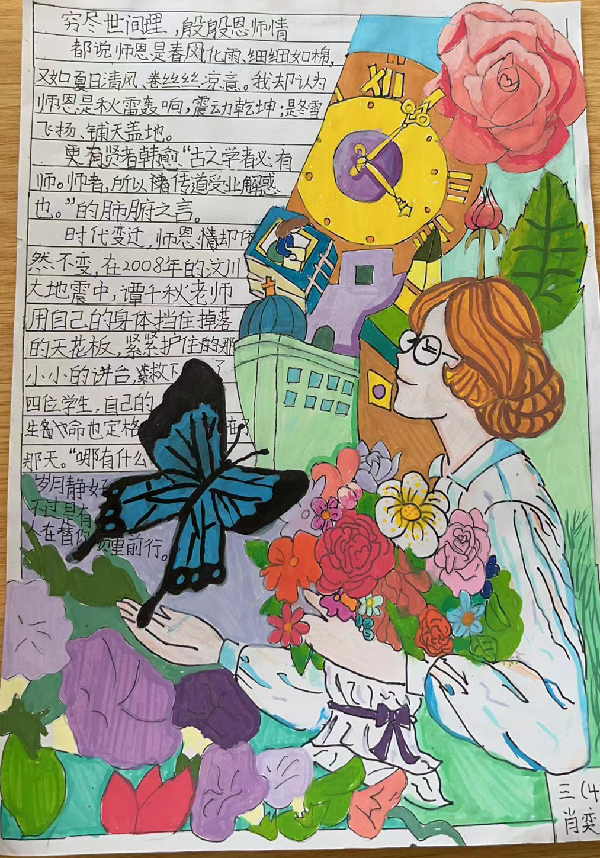 穷尽世间理，殷殷恩师情
都说师恩是春风化雨，细细如棉，
又如夏日清风、卷丝丝凉意。我却认为
师恩是秋雷轰响，震动乾坤；是冬雪
飞扬、铺天盖地。
更有贤者韩愈“古之学者必有
师。师者，所以传道受业解惑
也。”的肺腑之言。
时代变迁，师恩情却依
然不变，在2008年的汶川
大地震中，谭千秋老师
用自己的身体挡住掉落
的天花板，紧紧护住的那
小小的讲台，救下 了
四位学生，自己的
生命也定格 在了
那天。“哪有什么
岁月静好
不过是有
人在替你 负重前行。
XII
三（4
肖奕